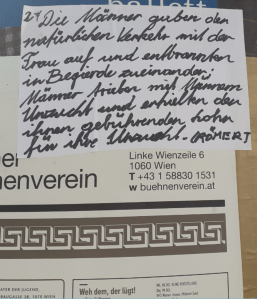 2+ Die Männer gaben den
natürlichen Verkehr mit der
Frau auf und entbrannten
in Begierde zueinander;
Männer trieben mit Männern
Unzucht und erhielten den
ihnen gebührenden Lohn
für ihre Unzucht. (RÖMER 1
Linke Wienzeile 6
1060 Wien
T +43 1 58830 1531
w buehnenverein.at
nenverein
Weh dem, der lügt!